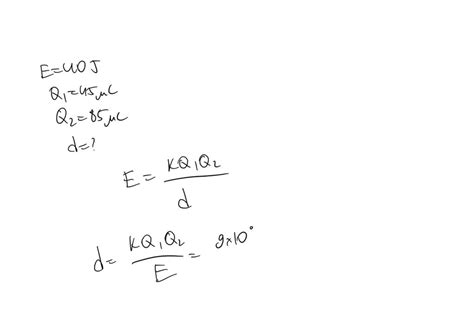 E=40J
Q₁=45μC
Q₂=85μC
d=?
E = KQ₁Q₂ / d
d = KQ₁Q₂ / E = 9×10°